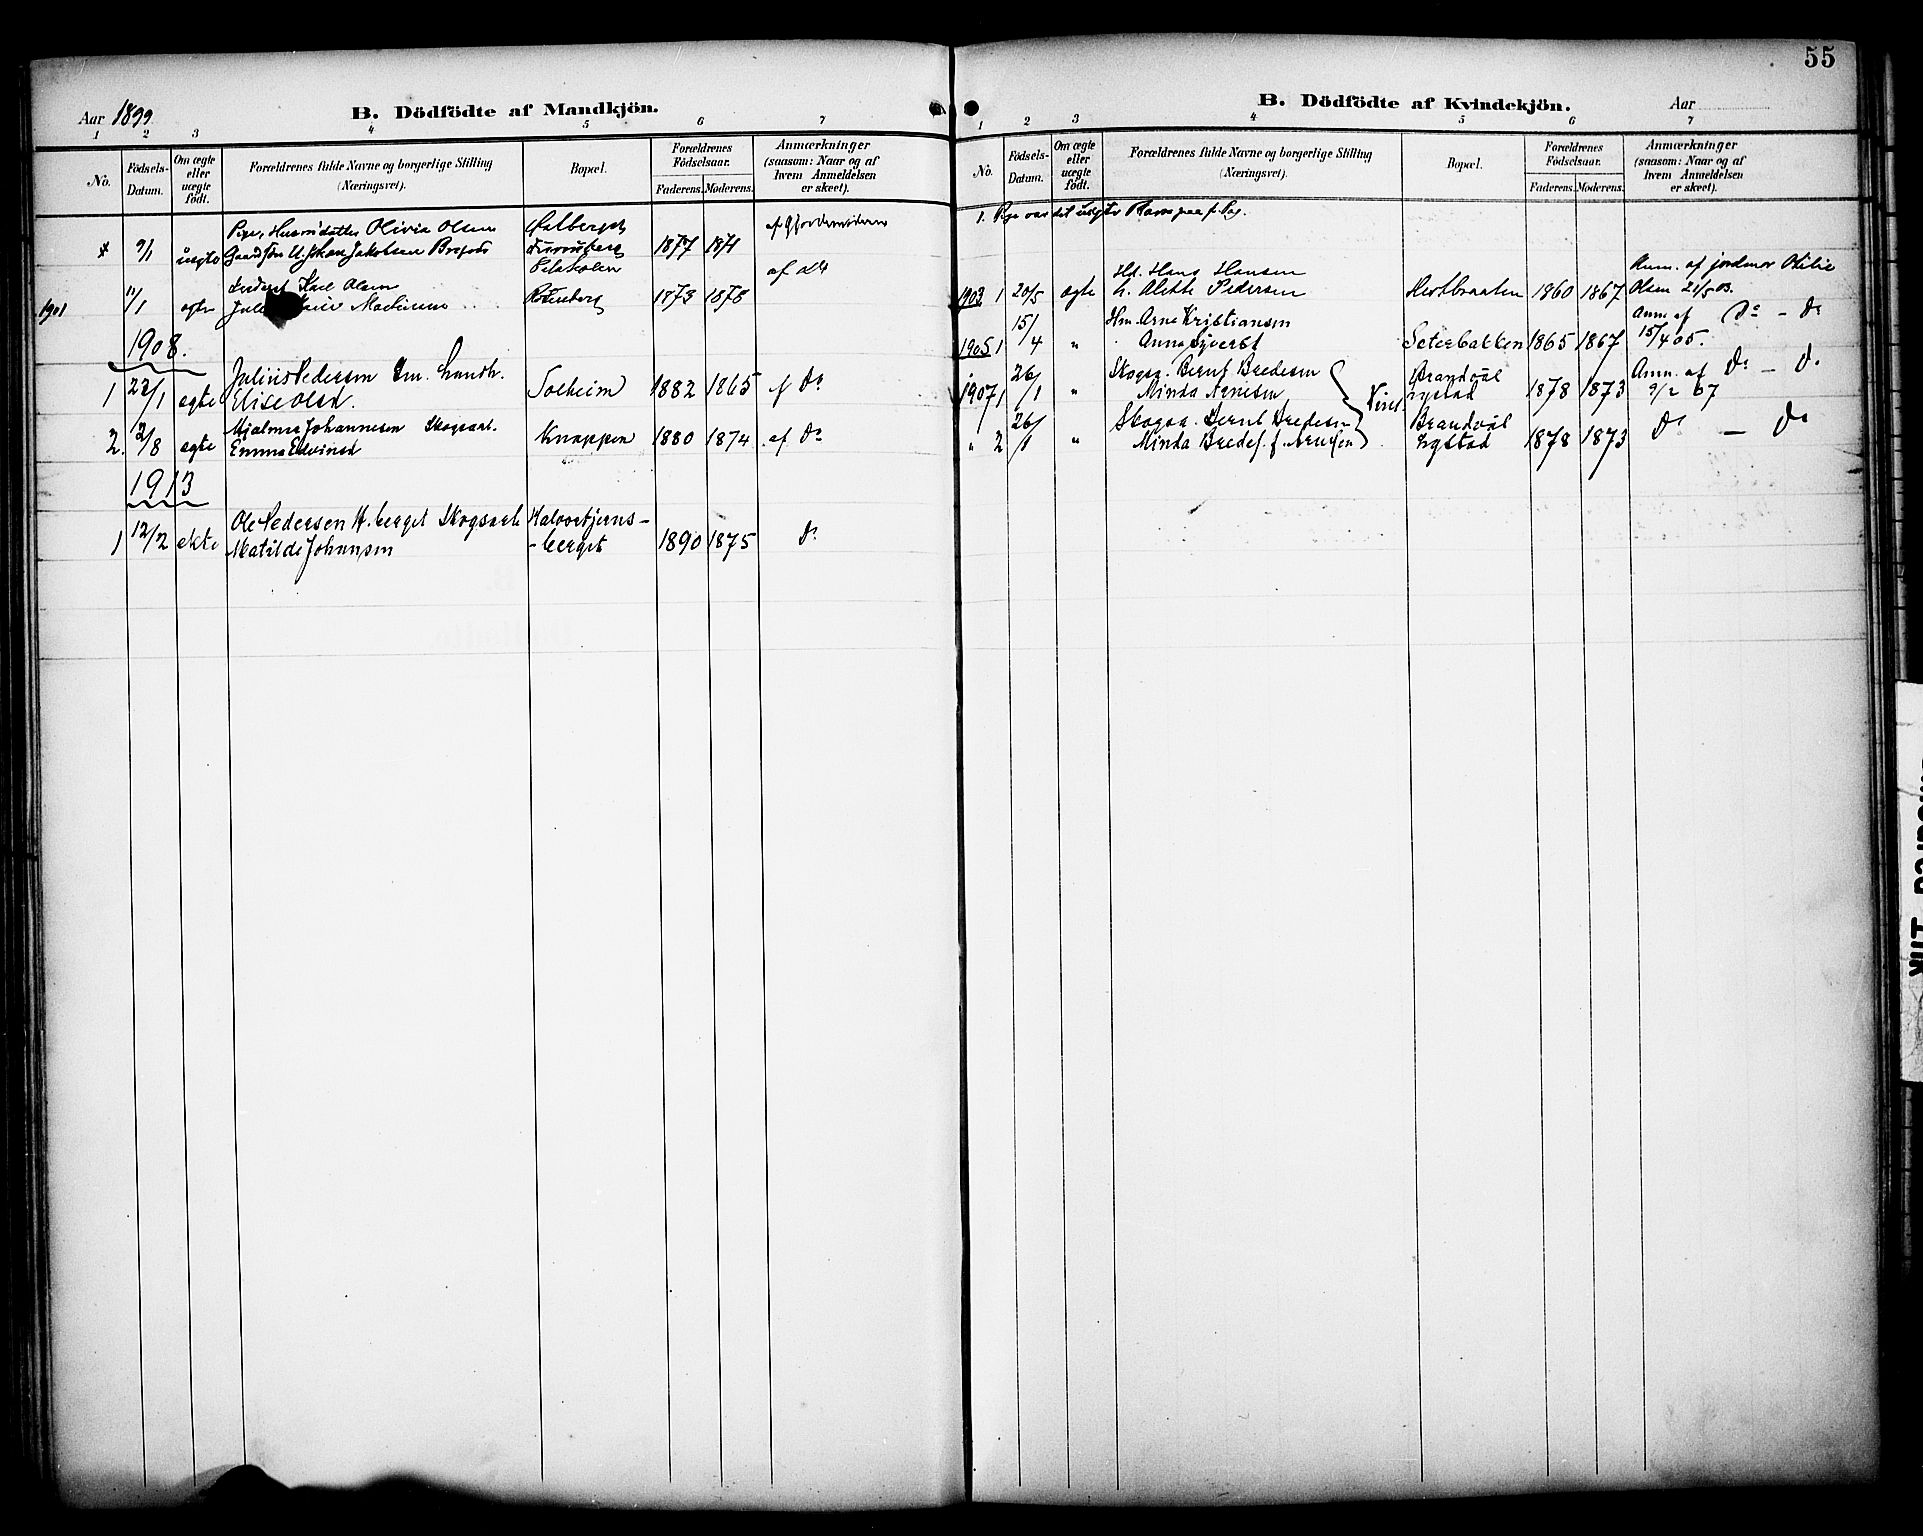 Aar 1899
B. Dödfödte af Mandkjön.
1 2 3 4 5 6 7
No.
Födsels-Datum.
Om ægte eller uægte födt.
Forældrenes fulde Navne og borgerlige Stilling (Næringsvei).
Bopæl.
Forældrenes Födselsaar.
Faderens. Moderens.
Anmærkninger (saasom: Naar og af hvem Anmeldelsen er skeet).
Olivia Olsen
9/1 uægte Johan Jakobsen 1877 1871
af do
Karl Olsen
1901 11/1 ægte Martinsen Rotenberg 1873 1878
1908.
Julius Pedersen
1 22/1 ægte Elise Olsd. Solheim 1882 1865 af Do
Hjalmar Johannesen Skogsarb.
2. 2/8 ægte Emma Edvinsd Knappen 1880 1874 af Do
1913
Ole Pedersen H.berget Skogsarb Kalvestjerns-
1 12/2 ekte Matilde Johansen -berget 1890 1875 Do
55
B. Dödfödte af Kvindekjön.
Aar
1 2 3 4 5 6 7
No.
Födsels-Datum.
Om ægte eller uægte födt.
Forældrenes fulde Navne og borgerlige Stilling (Næringsvei).
Bopæl.
Forældrenes Födselsaar.
Faderens. Moderens.
Anmærkninger (saasom: Naar og af hvem Anmeldelsen er skeet).
Hans Hansen Anm. af jordmor Otilie
1903 1 20/5 ægte h. Alette Pedersen 1860 1867 Olsen 21/5 03.
Hm. Arne Kristiansen Anm. af Do - Do
1905 1 15/4 " Anna Syversd Seterbakken 1865 1867 15/4 05.
Skogsa. Bernt Bredesen Brandvål Anm. af Do - Do
1907 1 26/1 " Minda Arnesen 1878 1873 9/2 07
Skogsa. Bernt Bredesen Brandvål
" 2 26/1 " Minda Bredes. f. Arnesen 1878 1873 Do - Do